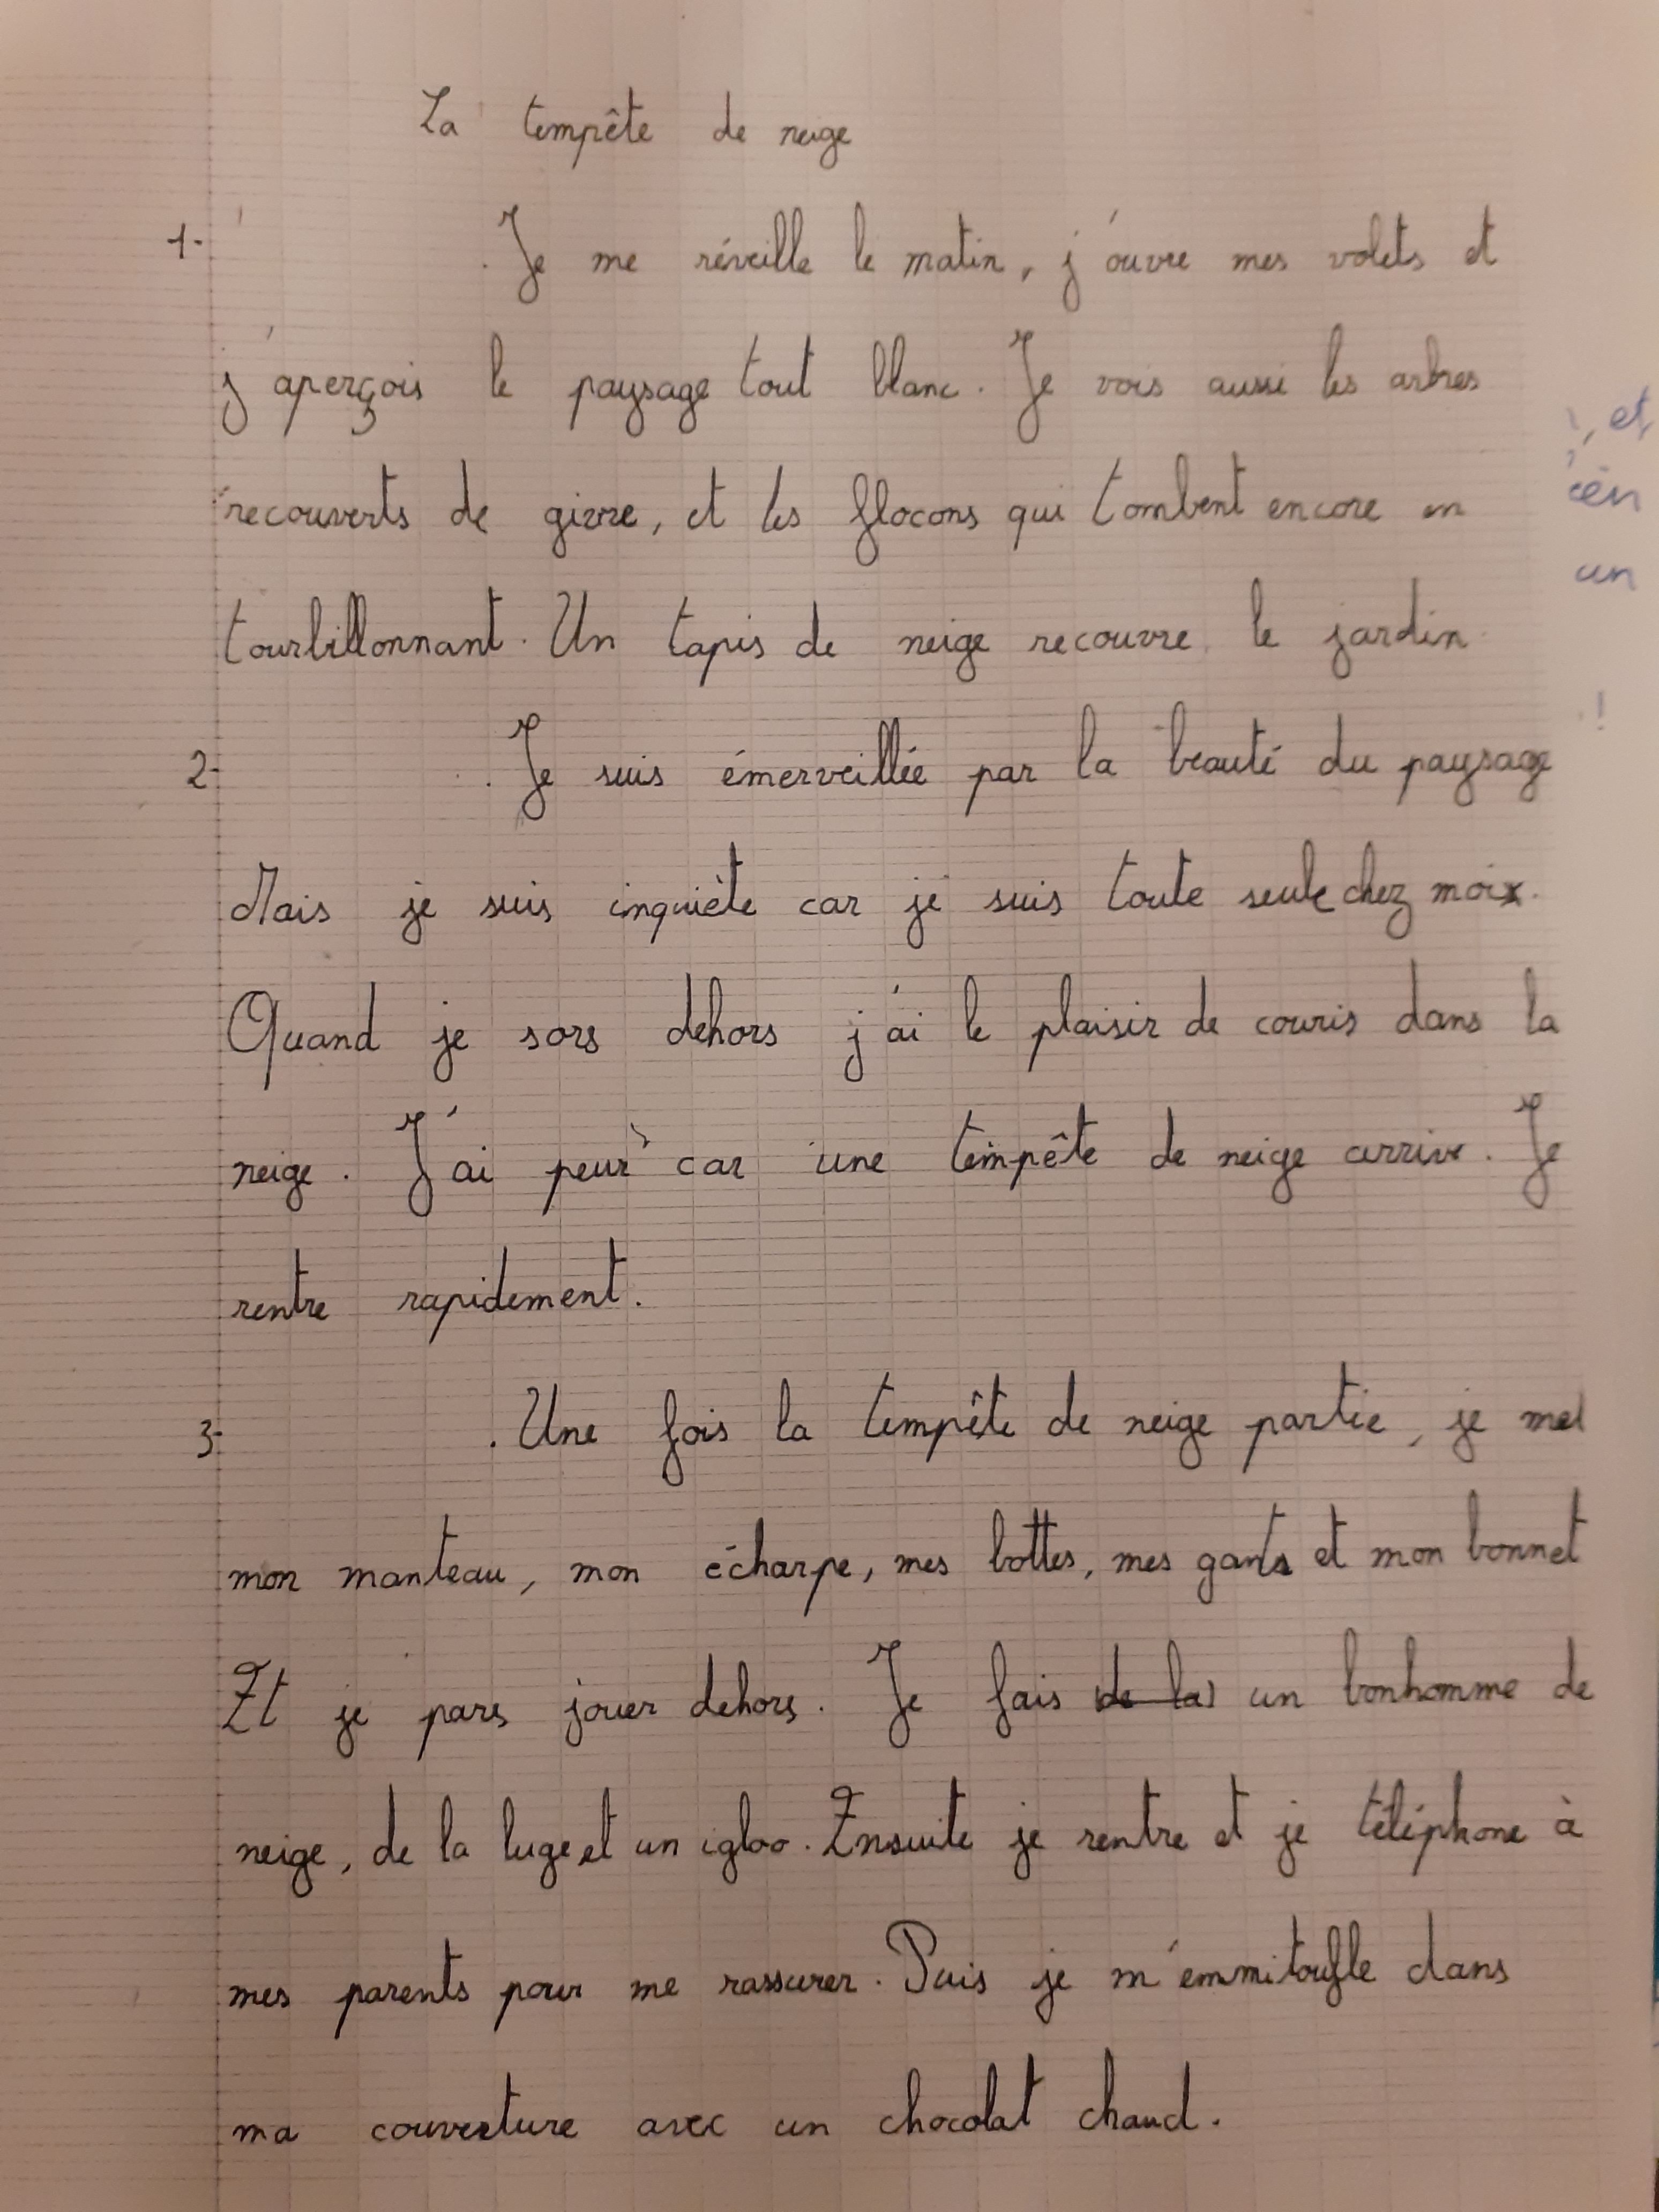 La tempête de neige
1- . Je me réveille le matin, j'ouvre mes volets et
j'aperçois le paysage tout blanc. Je vois aussi les arbres
, et
recouverts de givre, et les flocons qui tombent encore en
un
tourbillonnant. Un tapis de neige recouvre le jardin
!
2- . Je suis émerveillée par la beauté du paysage
Mais je suis inquiète car je suis toute seule chez moi.
Quand je sors dehors j'ai le plaisir de couris dans la
neige. J'ai peur car une tempête de neige arrive. Je
rentre rapidement.
3- . Une fois la tempête de neige partie, je met
mon manteau, mon écharpe, mes bottes, mes gants et mon bonnet
Et je pars jouer dehors. Je fais de la un bonhomme de
neige, de la luge et un igloo. Ensuite je rentre et je téléphone à
mes parents pour me rassurer. Puis je m'emmitoufle dans
ma couverture avec un chocolat chaud.